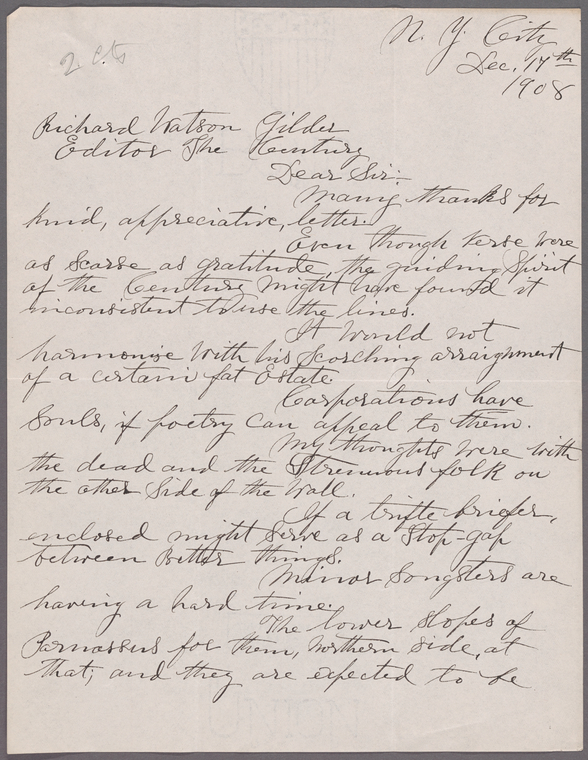 2 cts
N. Y. City
Dec. 17th
1908
Richard Watson Gilder
Editor The Century
Dear Sir:-
Many thanks for
kind, appreciative, letter.
Even though verse were
as scarse as gratitude, the guiding Spirit
of the Century might have found it
inconsistent to use the lines.
It would not
harmonise with his scorching arraignment
of a certain fat Estate.
Corporations have
Souls, if poetry can appeal to them.
My thoughts were with
the dead and the Strenuous folk on
the other side of the Wall.
If a trifle briefer,
enclosed might serve as a Stop-gap
between better things.
Minor Songsters are
having a hard time.
The lower slopes of
Parnassus for them, Northern side, at
that; and they are expected to be